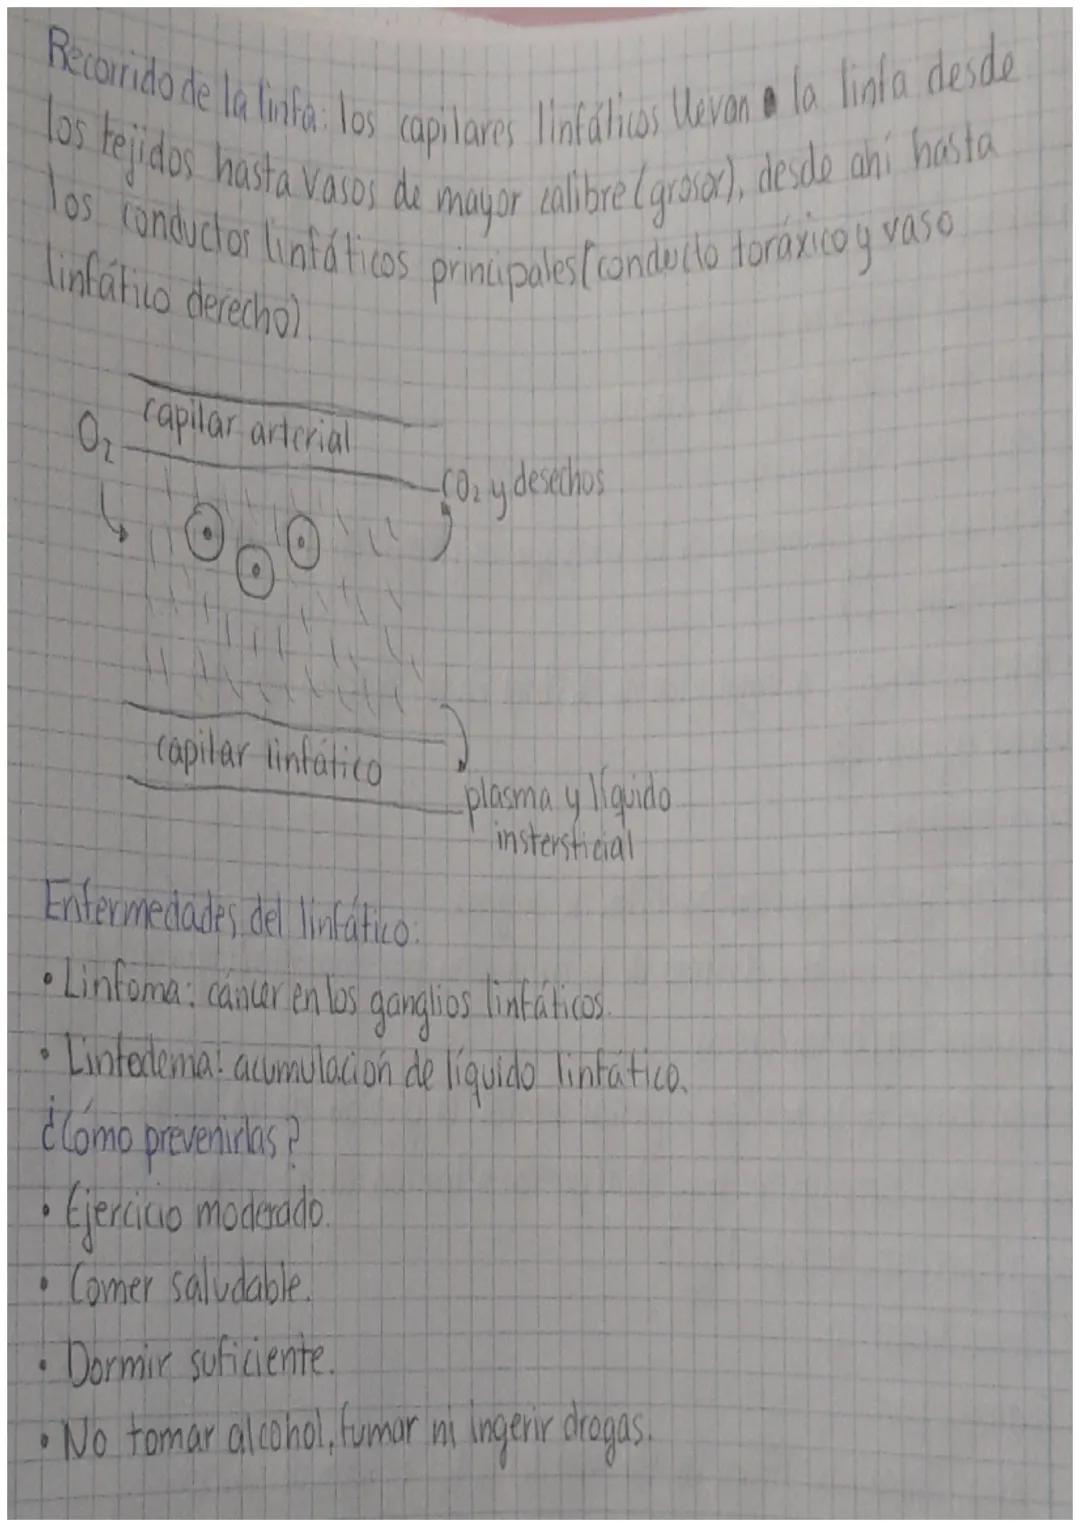 Recorrido de la linfa: los capilares linfáticos llevan a la linfa desde
los tejidos hasta vasos de mayor calibre (grosor), desde ahí hasta
los conductos linfáticos principales (conducto toráxico y vaso
linfático derecho).
capilar arterial
O₂
CO₂ y desechos
capilar linfático
plasma y líquido
instersticial
Enfermedades del linfático:
• Linfoma: cáncer en los ganglios linfáticos.
• Linfedema: acumulación de líquido linfático.
¿Cómo prevenirlas?
• Ejercicio moderado.
• Comer saludable.
• Dormir suficiente.
• No tomar alcohol, fumar ni ingerir drogas.